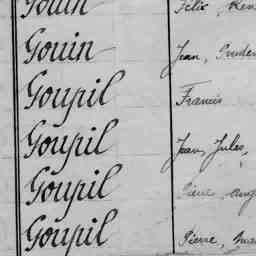 Gouin Félix, René
Gouin Jean, Pruden
Goupil Francis
Goupil Jean, Jules,
Goupil Pierre, Aug
Goupil Pierre, Ma